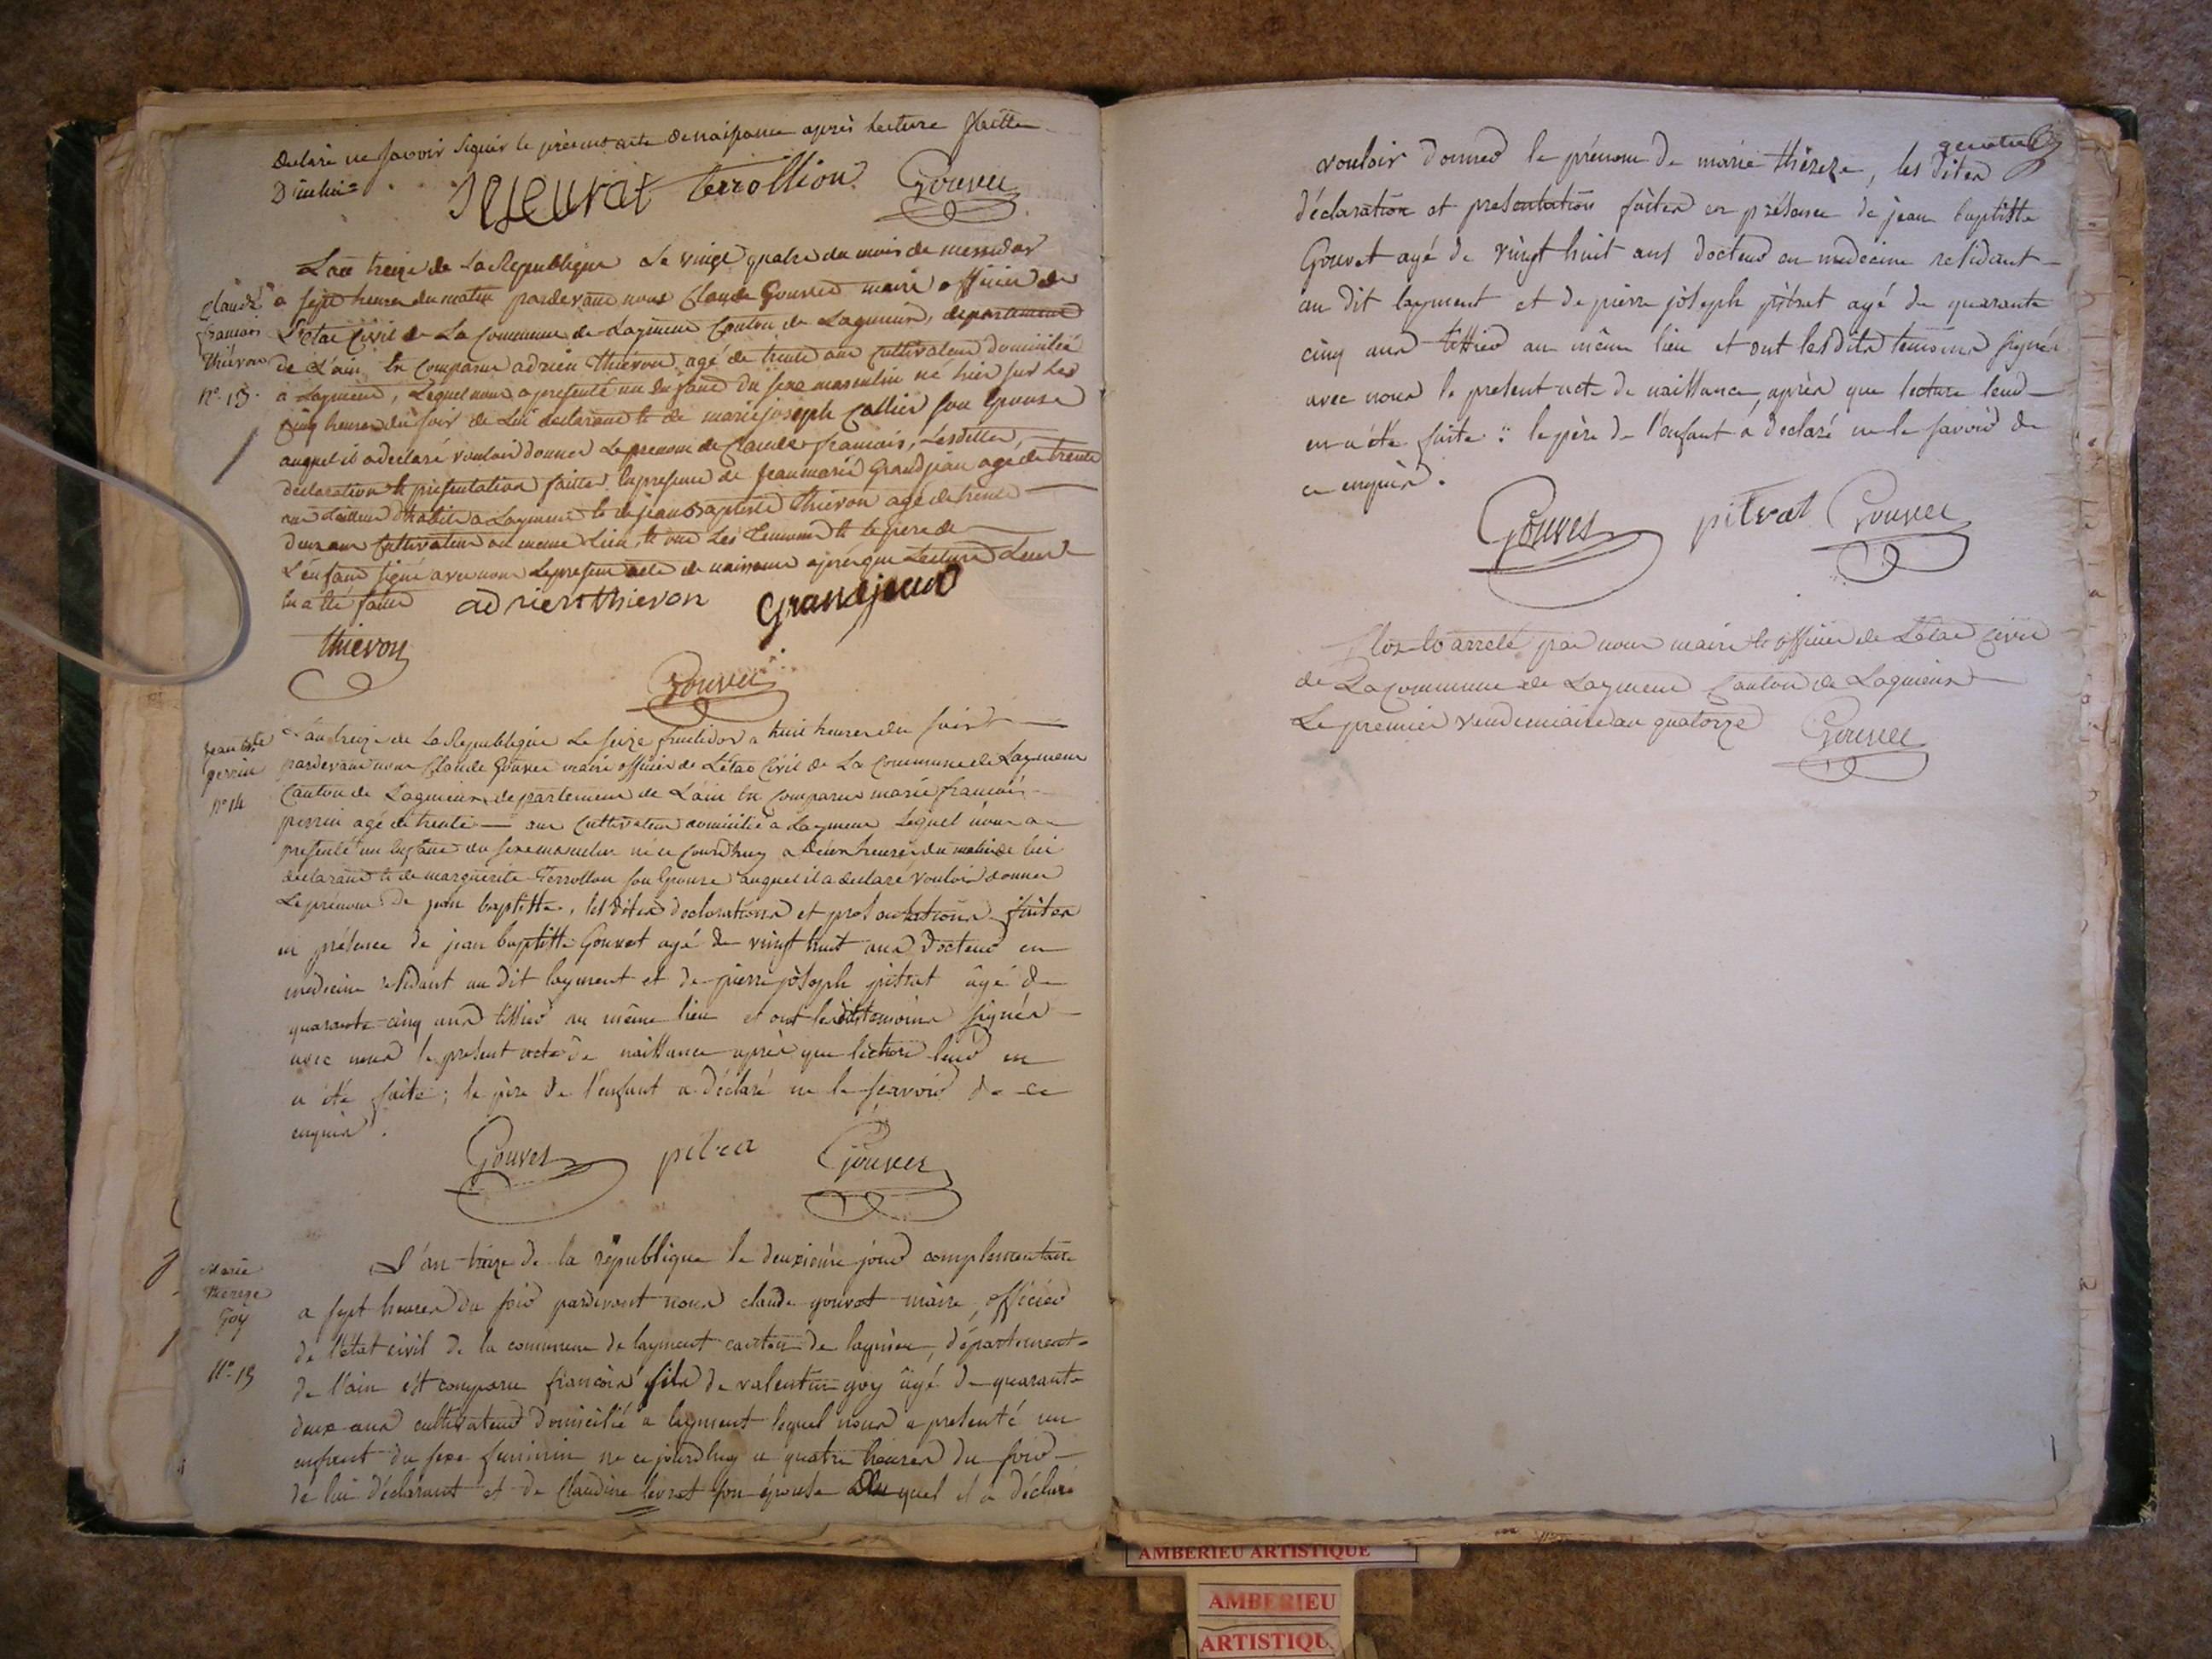 Declaré ne savoir signer le présent acte de naissance après lecture faitte
Terrollion Gouvet
L'an treize de La Republique Le vingt quatre du mois de messidor
Claude
françois
Thiévon
n°. 13.
a sept heures du matin pardevant nous Claude Gouvet maire officier de
L'état Civil de La Commune de Layment Canton de Lagnieux, departement
de L'ain Est Comparu adrien Thievon agé de trente ans Cultivateur domicilié
a Layment, Lequel nous a presenté un Enfant du sexe masculin né hier sur Les
Cinq heures du soir de Lui declarant Et de marie joseph Callier son Epouse
auquel il a declaré vouloir donner Le prenom de Claude françois, Lesdittes
declaration Et présentation faittes En presence de jean marie Grandjean agé de trente
ans a Layment Et de jean Baptiste Thievon agé de trente
deux ans Cultivateur au meme Lieu, Et ont Les Temoins Et le pere de
L'enfant signé avec nous Le present acte de naissance après que Lecture Leur
En a été faitte adrien thievon Grandjean
thievon
Gouvet
jean bte
perrin
n° 14
L'an treize de La Republique Le seize fructidor a huit heures du soir
pardevant nous Claude Gouvet maire officier de L'etat Civil de La Commune de Layment
Canton de Lagnieux departement de L'ain Est Comparu marie françois
perrin agé de trente ans Cultivateur domicilié a Layment Lequel nous a
presenté un Enfant du sexe masculin né ce jourdhuy a deux heures du matin de lui
declarant Et de marguerite Terrollion son Epouse auquel il a declaré vouloir donner
Le prenom de jean baptiste, les dites declarations et presentations faites
en présence de jean baptiste Gouvet agé de vingt huit ans docteur en
medecine residant au dit layment et de pierre joseph pitrat âgé de
quarante-cinq ans tissier au même lieu et ont les dits temoins signés
avec nous le present acte de naissance après que lecture leur en
a été faite; le père de l'enfant a déclaré ne le sçavoir de ce
enquis.
Gouvet pitra Gouvet
Marie
Thereze
Goy
N°. 15
L'an treize de la république le deuxieme jour complementaire
a sept heures du soir pardevant nous claude gouvet maire, officier
de l'état civil de la commune de layment canton de lagnieu, département
de l'ain est comparu françois fils de valentin goy âgé de quarante
deux ans cultivateur domicilié a layment lequel nous a presenté un
enfant du sexe feminin né ce jourdhuy a quatre heures du soir
de lui déclarant et de Claudine levrat son épouse auquel il a déclaré
vouloir donner le prénom de marie thèreze, les dites
déclaration et presentation faites en présence de jean baptiste
Gouvet agé de vingt huit ans docteur en medecine residant
au dit layment et de pierre joseph pitrat agé de quarante
cinq ans tissier au même lieu et ont les dits temoins signés
avec nous le present acte de naissance, après que lecture leur
en a été faite: le père de l'enfant a declaré ne le savoir de
ce enquis.
Gouvet pitrat Gouvet
Clos Et arreté par nous maire Et officier de L'état Civil
de La Commune de Layment Canton de Lagnieux
Le premier vendemiaire an quatorze Gouvet
AMBERIEU ARTISTIQUE
AMBERIEU
ARTISTIQU